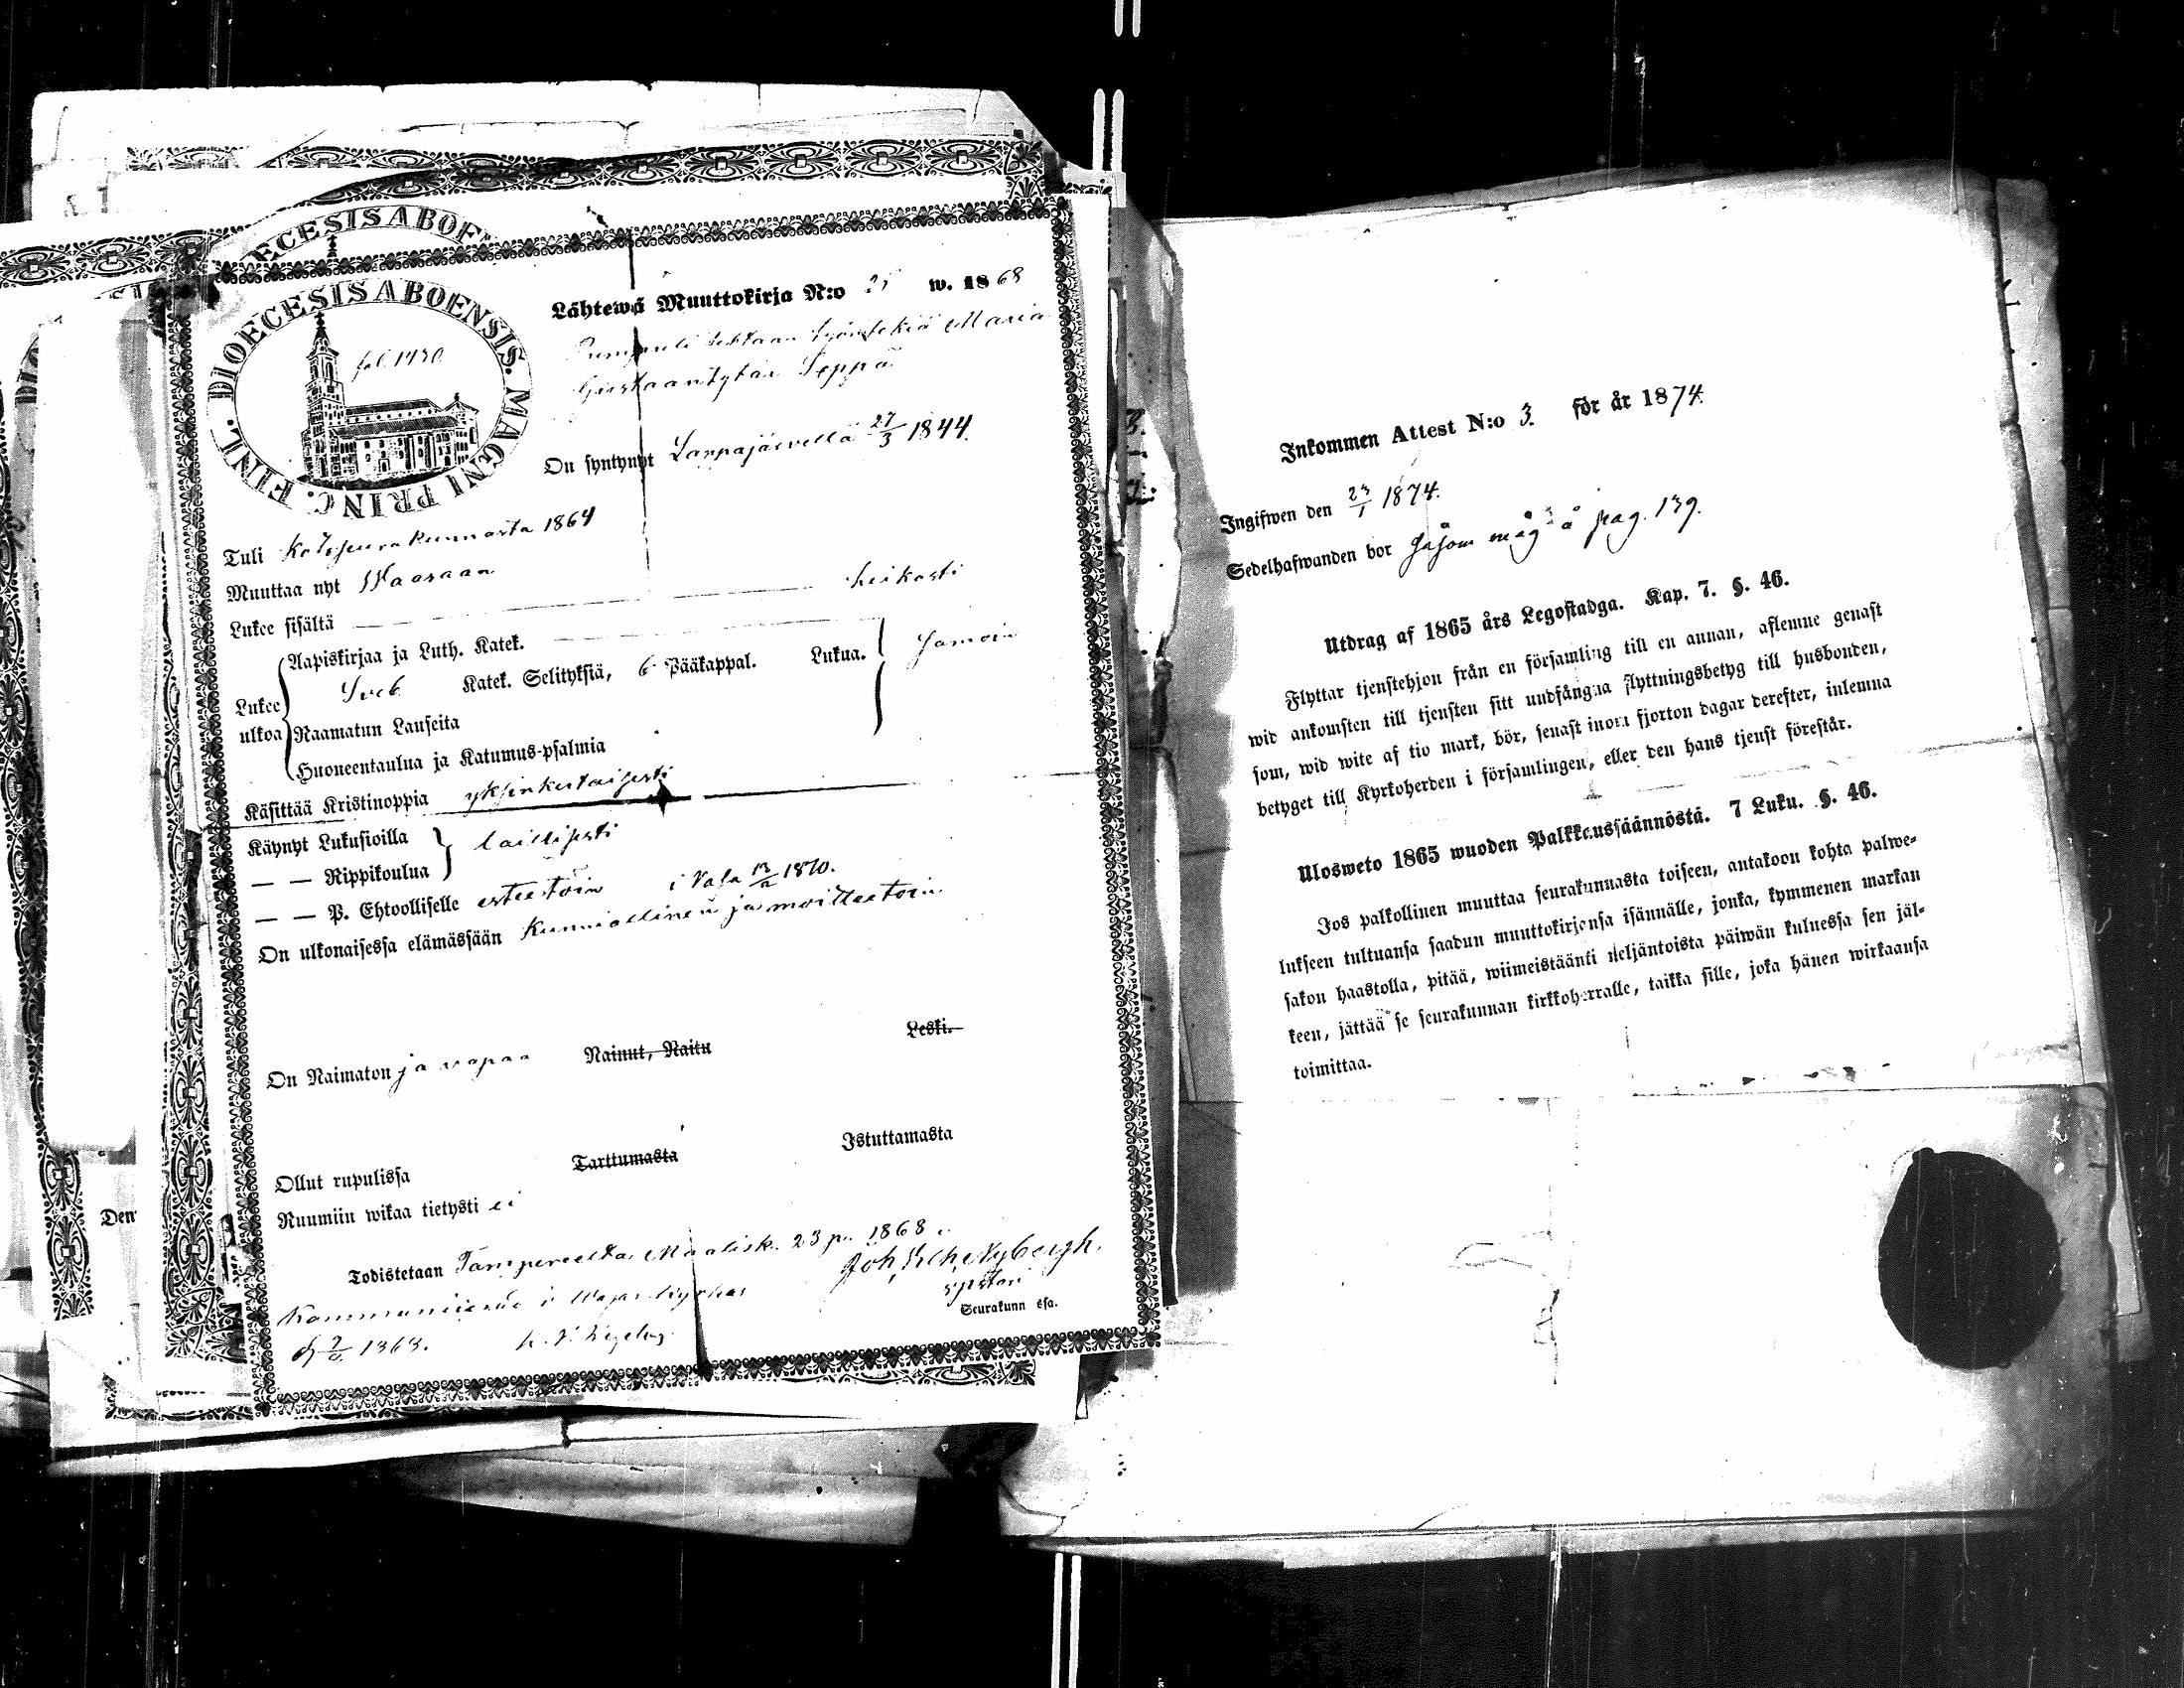 DIOECESIS ABOENSIS. MAGNI PRINC. FINL.
fol. 1430.
Lähtewä Muuttokirja N:o 25 w. 1868
Pumpuli tehtaan työntekiä Maria
Gustaantytär Seppä
On syntynyt Lappajärvellä 27/3 1844.
Tuli Kotoseurakunnasta 1864
Muuttaa nyt Waasaan
Lukee sisältä heikosti
Lukee ulkoa
Aapiskirjaa ja Luth. Katek.
Sveb. Katek. Selityksiä, 6 Pääkappal. Lukua. Samoin
Raamatun Lauseita
Huoneentaulua ja Katumus-psalmia
Käsittää Kristinoppia yksinkertaisesti
Käynyt Lukusioilla
— — Rippikoulua laillisesti
— — P. Ehtoolliselle esteetöin i Vasa 1870.
On ulkonaisessa elämässään kunniallinen ja moitteetoin
On Naimaton ja vapaa Nainut, Naitu Leski.
Ollut rupulissa Tarttumasta Istuttamasta
Ruumiin wikaa tietysti ei
Todistetaan Tampereelta Maalisk. 23 p. 1868
Joh. Nybergh.
Seurakunn ssa.
1868.
Dem
Inkommen Attest N:o 3. för år 1874.
Ingifwen den 23/1 1874.
Sedelhafwanden bor såsom måg å pag. 139.
Utdrag af 1865 års Legostadga. Kap. 7. §. 46.
Flyttar tjenstehjon från en församling till en annan, aflemne genast
wid ankomsten till tjensten sitt undfångna flyttningsbetyg till husbonden,
som, wid wite af tio mark, bör, senast inom fjorton dagar derefter, inlemna
betyget till Kyrkoherden i församlingen, eller den hans tjenst förestår.
Ulosweto 1865 wuoden Palkkaussäännöstä. 7 Luku. §. 46.
Jos palkollinen muuttaa seurakunnasta toiseen, antakoon kohta palwe-
lukseen tultuansa saadun muuttokirjansa isännälle, jonka, kymmenen markan
sakon haastolla, pitää, wiimeistäänki neljäntoista päiwän kuluessa sen jäl-
keen, jättää se seurakunnan kirkkoherralle, taikka sille, joka hänen wirkaansa
toimittaa.